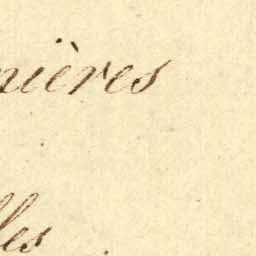 nières
lles